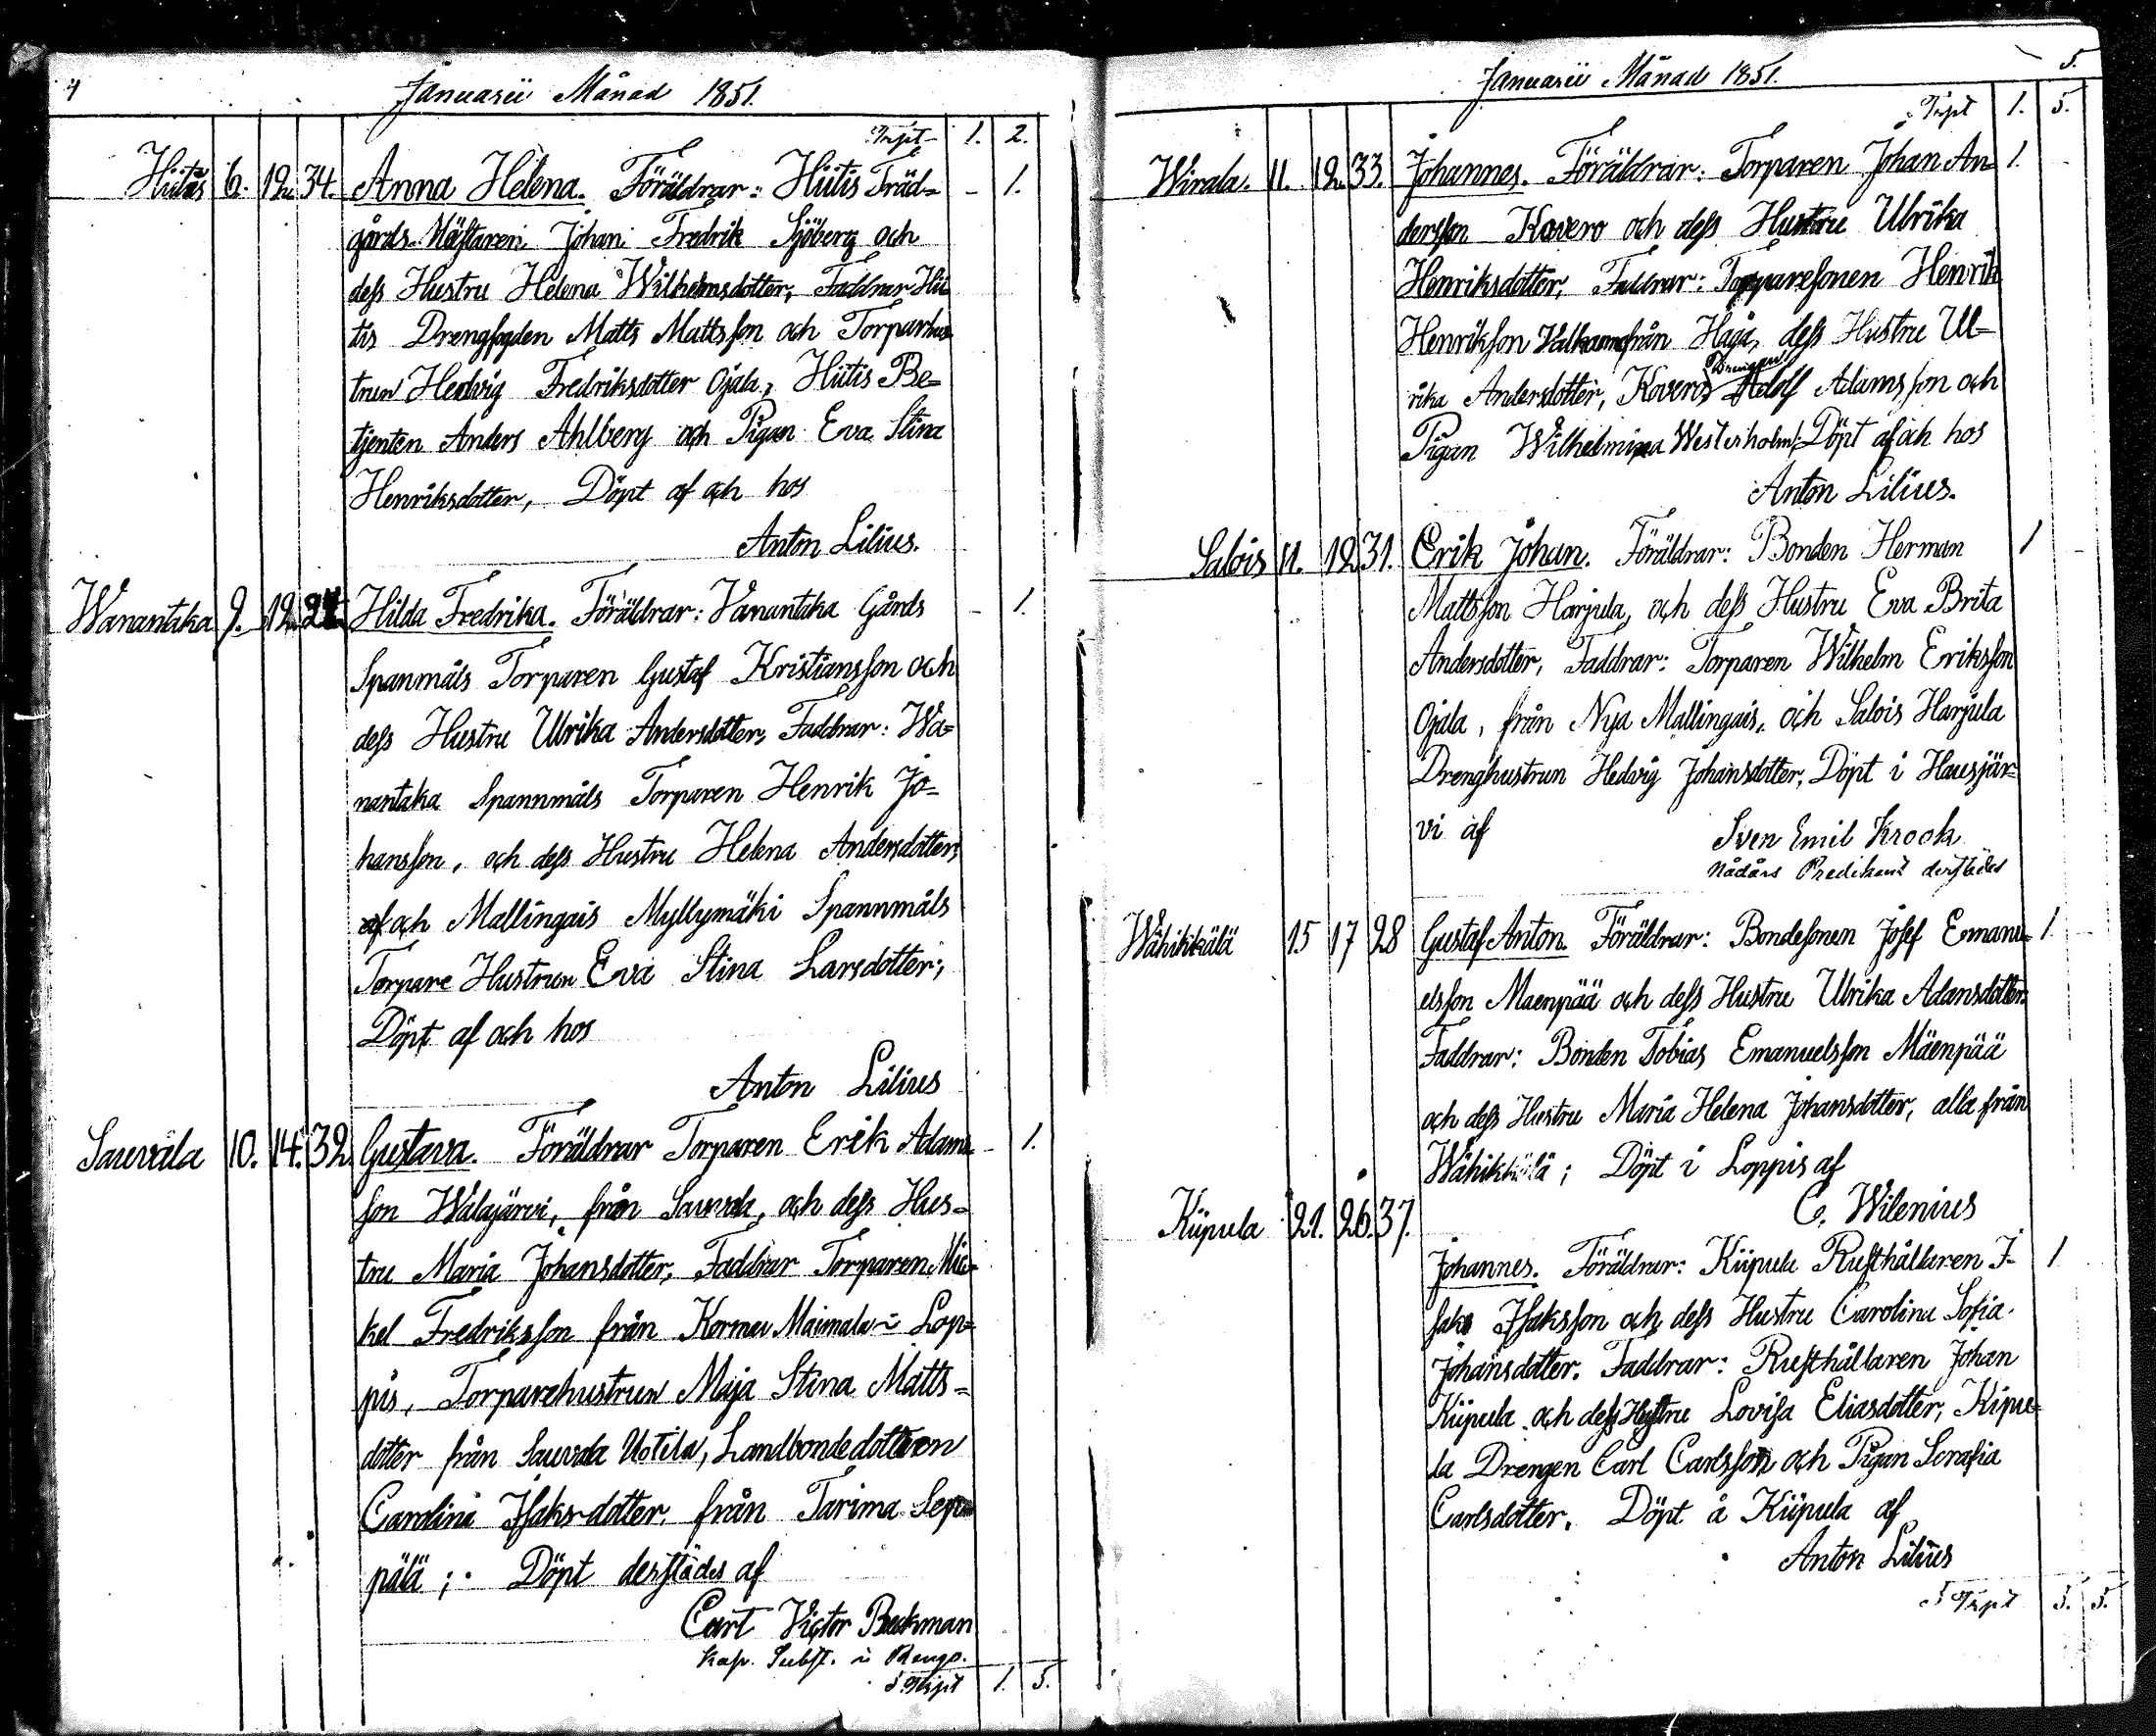 4
Januarii Månad 1851.
Trpt 1. 2.
Hiitis 6. 12. 34. Anna Helena. Föräldrar: Hiitis Träd= - 1.
gårds-Mästaren Johan Fredrik Sjöberg och
dess Hustru Helena Wilhelmsdotter, Faddrar Hii
tis Drengfogden Matts Mattsson och Torparhus
trun Hedvig Fredriksdotter Ojala, Hiitis Be=
tjenten Anders Ahlberg och Pigan Eva Stina
Henriksdotter, Döpt af och hos
Anton Lilius.
Wanantaka 9. 12. Hilda Fredrika. Föräldrar: Vanantaka Gårds - 1.
Spanmåls Torparen Gustaf Kristiansson och
dess Hustru Ulrika Andersdotter, Faddrar: Wa=
nantaka Spannmåls Torparen Henrik Jo=
hansson, och dess Hustru Helena Andersdotter,
och Mallingais Myllymäki Spannmåls
Torpare Hustrun Eva Stina Larsdotter;
Döpt af och hos
Anton Lilius
Sauvala 10. 14. 32 Gustava. Föräldrar Torparen Erik Adams - 1.
son Walajärvi, från Sauvala, och dess Hus=
tru Maria Johansdotter, Faddrar Torparen Mic-
kel Fredriksson från Kormu Maimala i Lop=
pis, Torparehustrun Maja Stina Matts=
dotter från Sauvala Uotila, Landbondedottren
Carolina Isaks-dotter från Tarima Sep
pälä; Döpt derstädes af
Carl Victor Beckman
Kap. Subst. i Rengo.
Trpt 1. 5.
Januarii Månad 1851.
5.
Trpt 1. 5.
Wirala. 11. 12. 33. Johannes. Föräldrar: Torparen Johan An= 1.
dersson Kovero och dess Hustru Ulrika
Henriksdotter, Faddrar: Torparesonen Henrik
Henriksson från Haga, dess Hustru Ul=
Drengen
rika Andersdotter, Kovero Adolf Adamsson och
Pigan Wilhelmina Westerholm; Döpt af och hos
Anton Lilius.
Salois 11. 12 31. Erik Johan. Föräldrar: Bonden Herman 1
Mattsson Harjula, och dess Hustru Eva Brita
Andersdotter, Faddrar: Torparen Wilhelm Eriksson
Ojala, från Nya Mallingais, och Salois Harjula
Drenghustrun Hedvig Johansdotter, Döpt i Hausjär=
vi af
Sven Emil Krook
Nådårs Predikant derstädes
Wähikkälä 15 17 28 Gustaf Anton. Föräldrar: Bondesonen Josef Emanu= 1.
elsson Maenpää och dess Hustru Ulrika Adamsdotter
Faddrar: Bonden Tobias Emanuelsson Mäenpää
och dess Hustru Maria Helena Johansdotter, alla från
Wähikkälä; Döpt i Loppis af
C. Wilenius
Kiipula 21. 26. 37.
Johannes. Föräldrar: Kiipula Rusthållaren I- 1
sak Isaksson och dess Hustru Carolina Sofia
Johansdotter. Faddrar: Rusthållaren Johan
Kiipula och dess Hustru Lovisa Eliasdotter, Kipu=
la Drengen Carl Carlsson och Pigan Serafia
Carlsdotter. Döpt å Kiipula af
Anton Lilius
Trpt 5. 5.